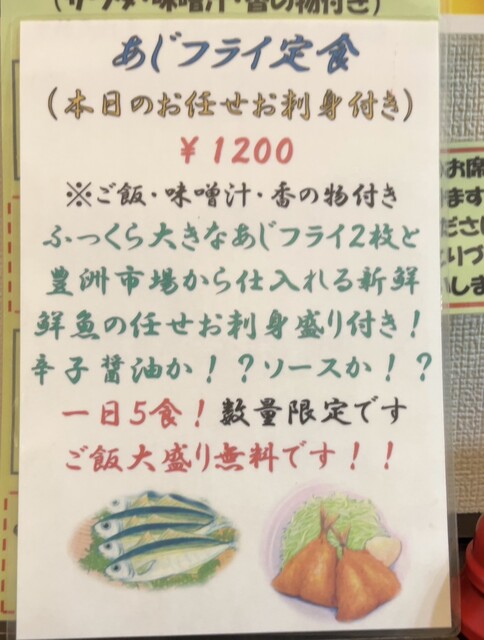 (サラダ・味噌汁・香の物付き)
あじフライ定食
(本日のお任せお刺身付き)
￥1200
※ご飯・味噌汁・香の物付き
ふっくら大きなあじフライ2枚と
豊洲市場から仕入れる新鮮
鮮魚の任せお刺身盛り付き！
辛子醤油か！？ソースか！？
一日5食！数量限定です
ご飯大盛り無料です！！
お席